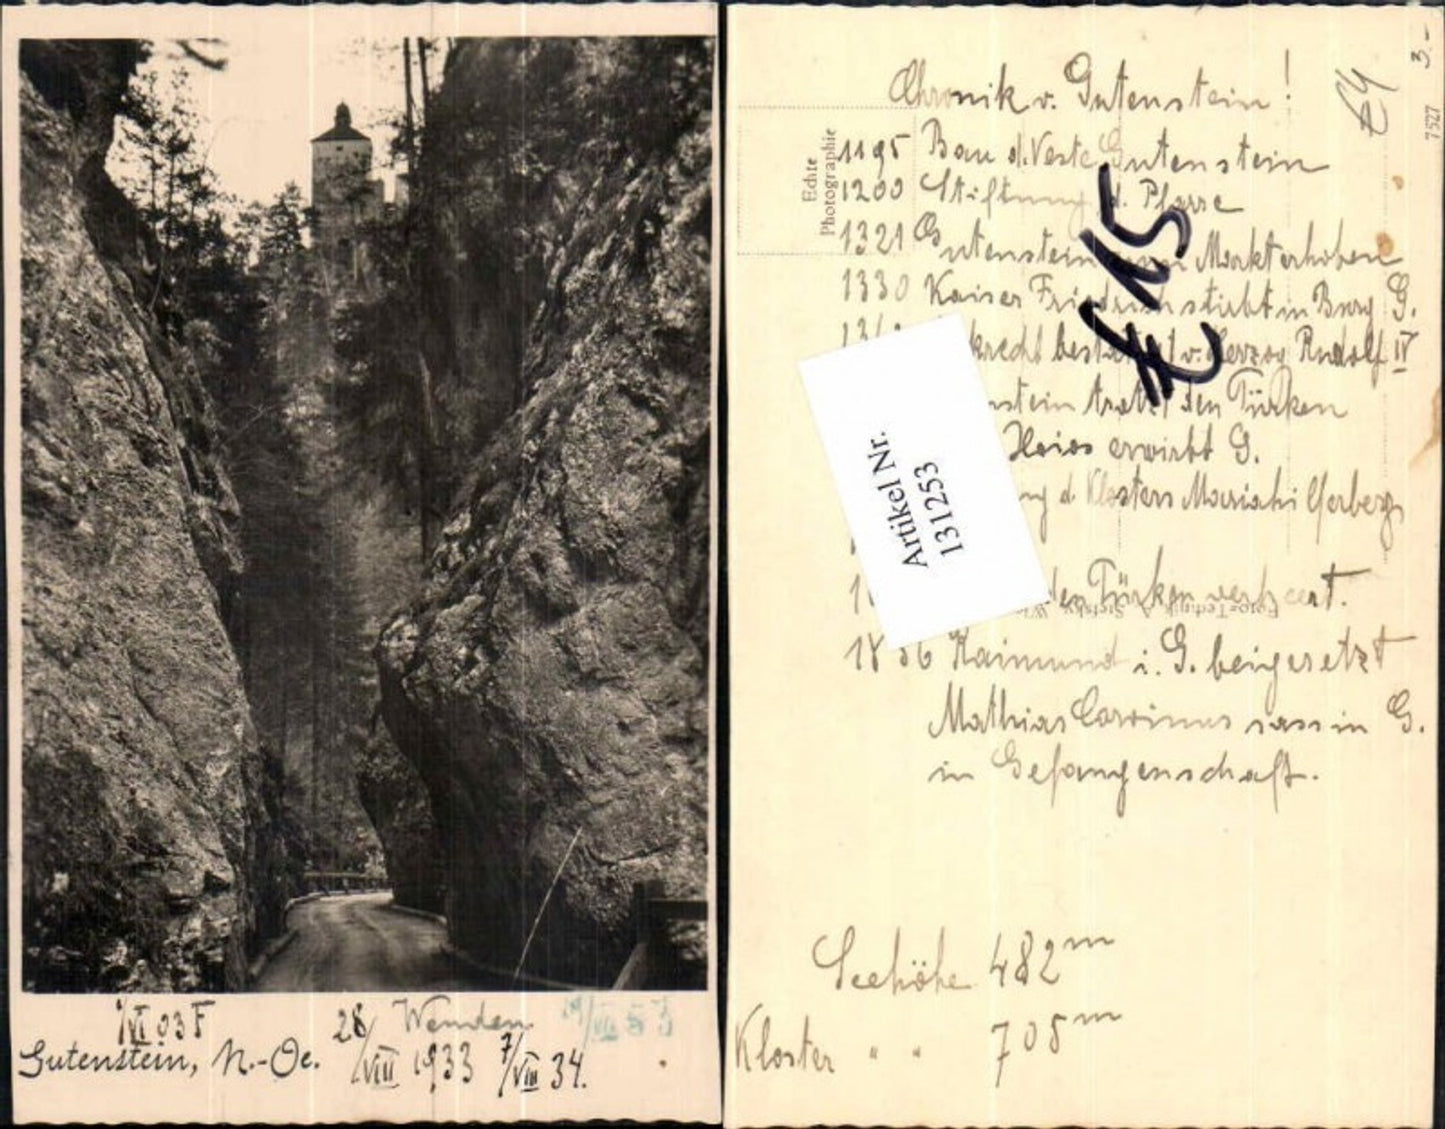 1/VI 03 F
28/VIII 1933
Wenden
19/VII 53
Gutenstein, N.-Oe.
7/VIII 34.
Chronik v. Gutenstein!
€4
3.-
7527
Echte
Photographie
1195 Bau d. Veste Gutenstein
1200 Stiftung d. Pfarre
1321 Gutenstein Markt erhoben
1330 Kaiser Friedrich stirbt in Burg G.
€ 15
krecht bestätigt v. Herzog Rudolf IV
nstein trotzt den Türken
Hoios erwirbt G.
ng d. Klosters Mariahilferberg
den Türken verheert.
1836 Raimund i. G. beigesetzt
Mathias Corvinus sass in G.
in Gefangenschaft.
Artikel Nr.
131253
Seehöhe 482 m
Kloster " " 705 m